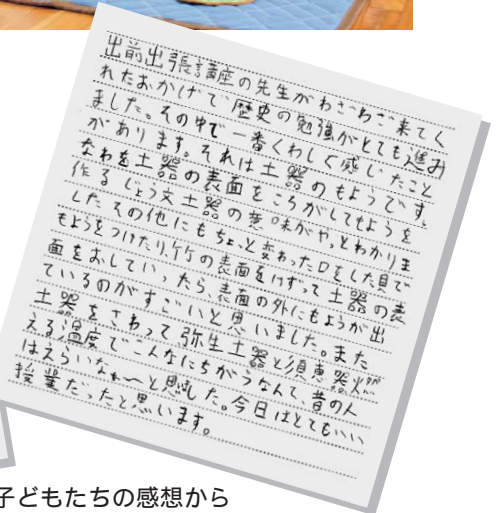 出前出張講座の先生がわざわざ来てく
れたおかげで歴史の勉強がとても進み
ました。その中で一番くわしく感じたこと
があります。それは土器のもようです。
なわを土器の表面をころがしてもようを
作るじょう文土器の意味がやっとわかりま
した。その他にもちょっと変わった口をした貝で
もようをつけたり、竹の表面をけずって土器の表
面をおしていったら、表面の外にもようが出
ているのがすごいと思いました。また
土器をさわって弥生土器と須恵器燃
える温度でこんなにちがうなんて、昔の人
はえらいなぁ〜と思した。今日はとてもいい
授業だったと思います。
子どもたちの感想から